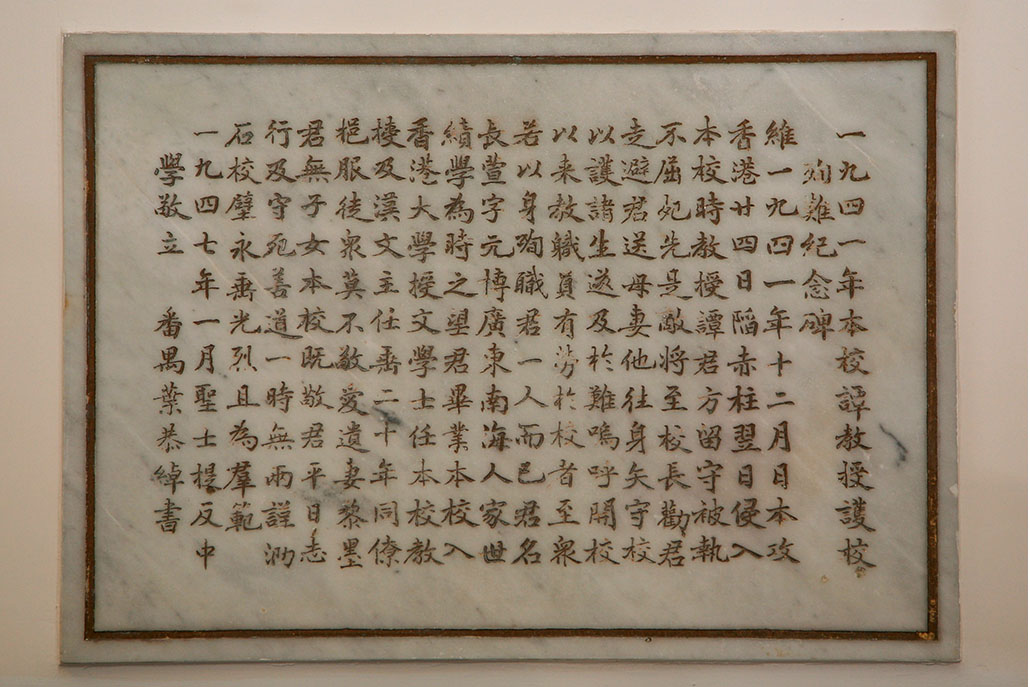 一九四一年本校譚教授護校
殉難紀念碑
維一九四一年十二月日本攻
香港廿四日陷赤柱翌日侵入
本校時教授譚君方留守被執
不屈死先是敵將至校長勸君
走避君送母妻他往身矢守校
以護諸生遂及於難嗚呼開校
以来教職員有勞於校者至衆
若以身殉職君一人而已君名
長萱字元博廣東南海人家世
績學為時之望君畢業本校入
香港大學授文學士任本校教
授及漢文主任垂二十年同僚
挹服徒衆莫不敬愛遺妻黎墨
君無子女本校既敬君平日志
行及守死善道一時無兩謹泐
石校壁永垂光烈且為羣範
一九四七年一月聖士提反中
學敬立 番禺葉恭綽書